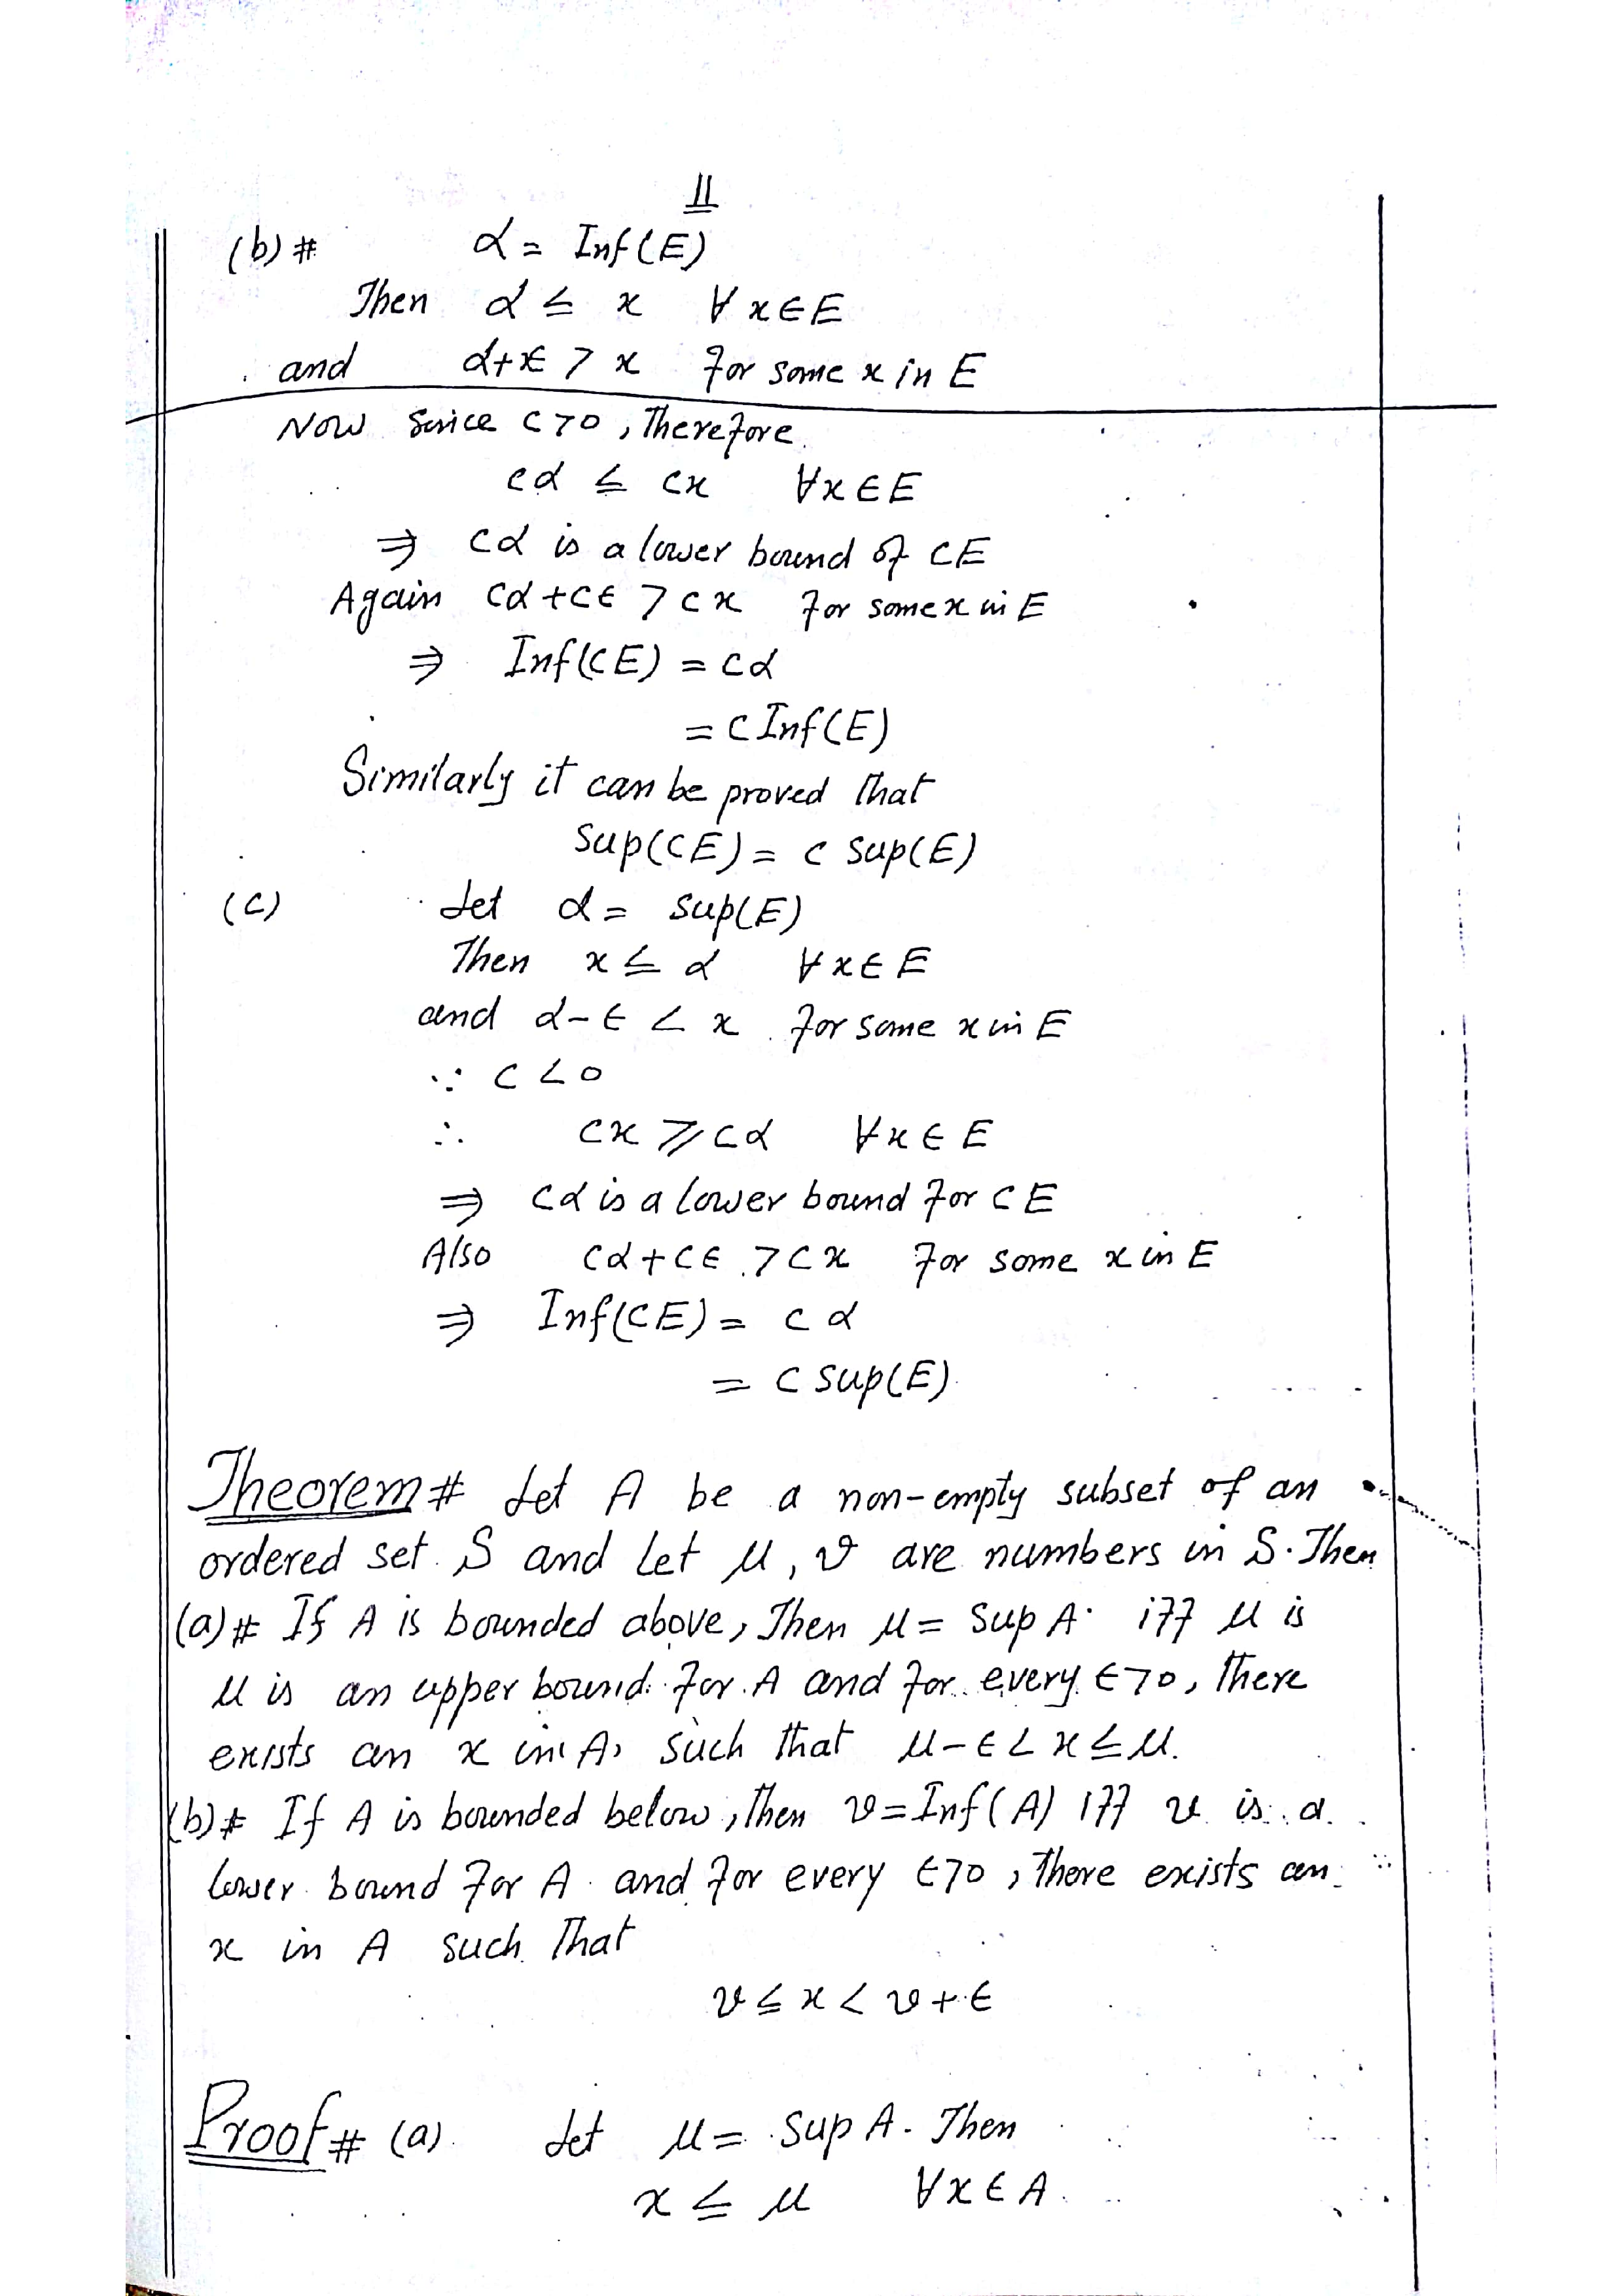 11
(b) # α = Inf(E)
Then α ≤ x ∀ x∈E
and α+ϵ > x for some x in E
Now Since c>0, Therefore
cα ≤ cx ∀x∈E
⇒ cα is a lower bound of CE
Again cα+cϵ > cx for some x in E
⇒ Inf(CE) = cα
= c Inf(E)
Similarly it can be proved that
Sup(CE) = c sup(E)
(c) Let α = sup(E)
Then x ≤ α ∀x∈E
and α-ϵ < x for some x in E
∵ c<0
∴ cx ≥ cα ∀x∈E
⇒ cα is a lower bound for CE
Also cα+cϵ > cx for some x in E
⇒ Inf(CE) = cα
= c sup(E)
Theorem # Let A be a non-empty subset of an
ordered set S and let u, v are numbers in S. Then
(a) # If A is bounded above, Then u = Sup A iff u is
u is an upper bound for A and for every ϵ>0, there
exists an x in A, such that u-ϵ < x ≤ u.
(b) # If A is bounded below, then v = Inf(A) iff v is a
lower bound for A and for every ϵ>0, There exists an
x in A such That
v ≤ x < v+ϵ
Proof # (a) Let u = Sup A. Then
x ≤ u ∀x∈A.